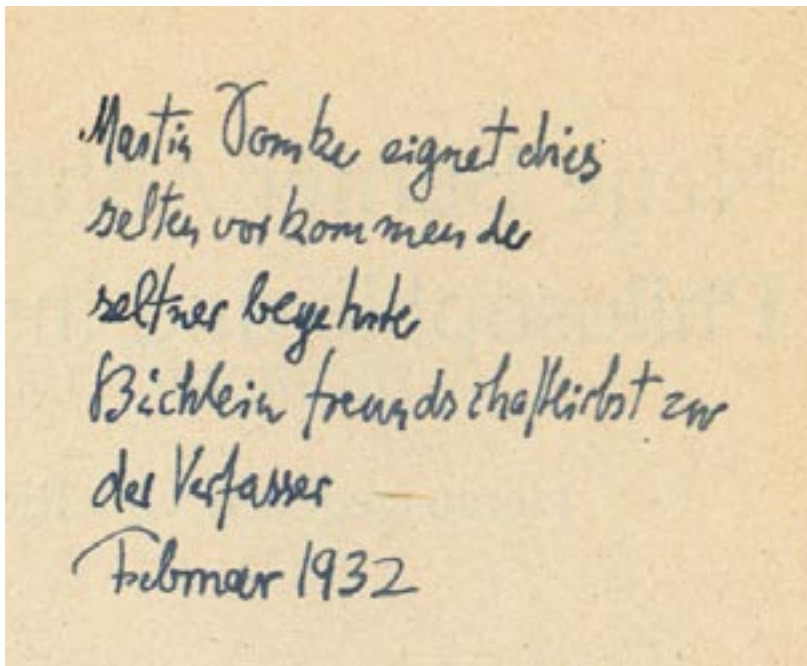 Martin Domke eignet dies
selten vorkommende
seltner begehrte
Büchlein freundschaftlichst zu
der Verfasser
Februar 1932